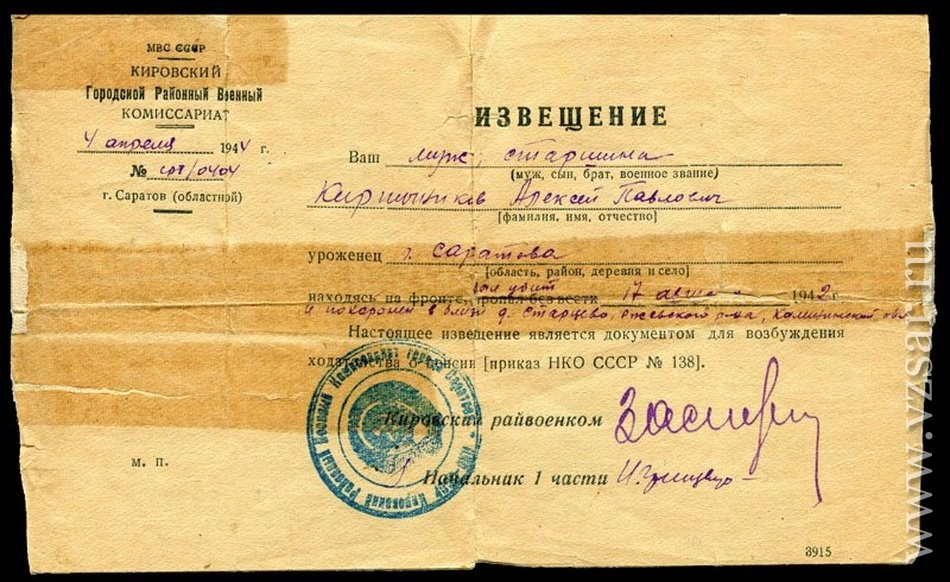 МВС СССР
КИРОВСКИЙ
Городской Районный Военный
КОМИССАРИАТ
4 апреля 1944 г.
№ /0404
г. Саратов (областной)
ИЗВЕЩЕНИЕ
Ваш муж, старшина
(муж, сын, брат, военное звание)
Кирпичников Алексей Павлович
[фамилия, имя, отчество]
уроженец г. Саратова
[область, район, деревня и село]
был убит
находясь на фронте, пропал без вести 17 августа 1942 г.
и похоронен в близи д. Старцево, Ржевского р-на, Калининской обл
Настоящее извещение является документом для возбуждения
ходатайства о пенсии [приказ НКО СССР № 138].
Кировский райвоенком
м. п.
Начальник 1 части
3915
Кировский Районный Военный Комиссариат города Саратова
www.vzsar.ru